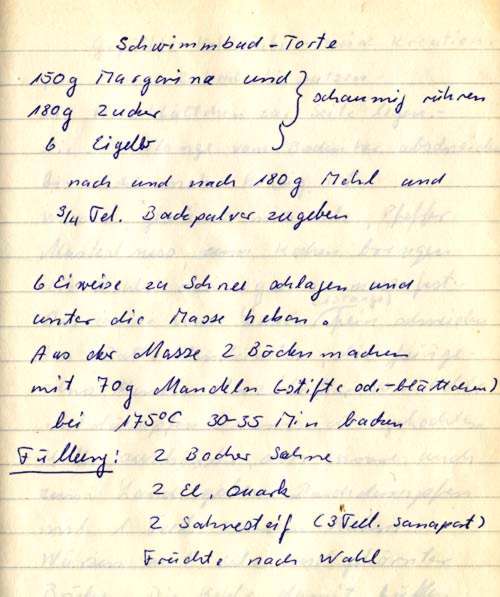 Schwimmbad-Torte
150g Margarine und
180g Zucker
schaumig rühren
6 Eigelb
nach und nach 180g Mehl und
3/4 Tel. Backpulver zugeben
6 Eiweise zu Schnee schlagen und
unter die Masse heben.
Aus der Masse 2 Böden machen
mit 70g Mandeln (-stifte od. -blättchen)
bei 175°C 30-35 Min backen
Füllung: 2 Becher Sahne
2 El. Quark
2 Sahnesteif (3 Teel. Sanapart)
Früchte nach Wahl